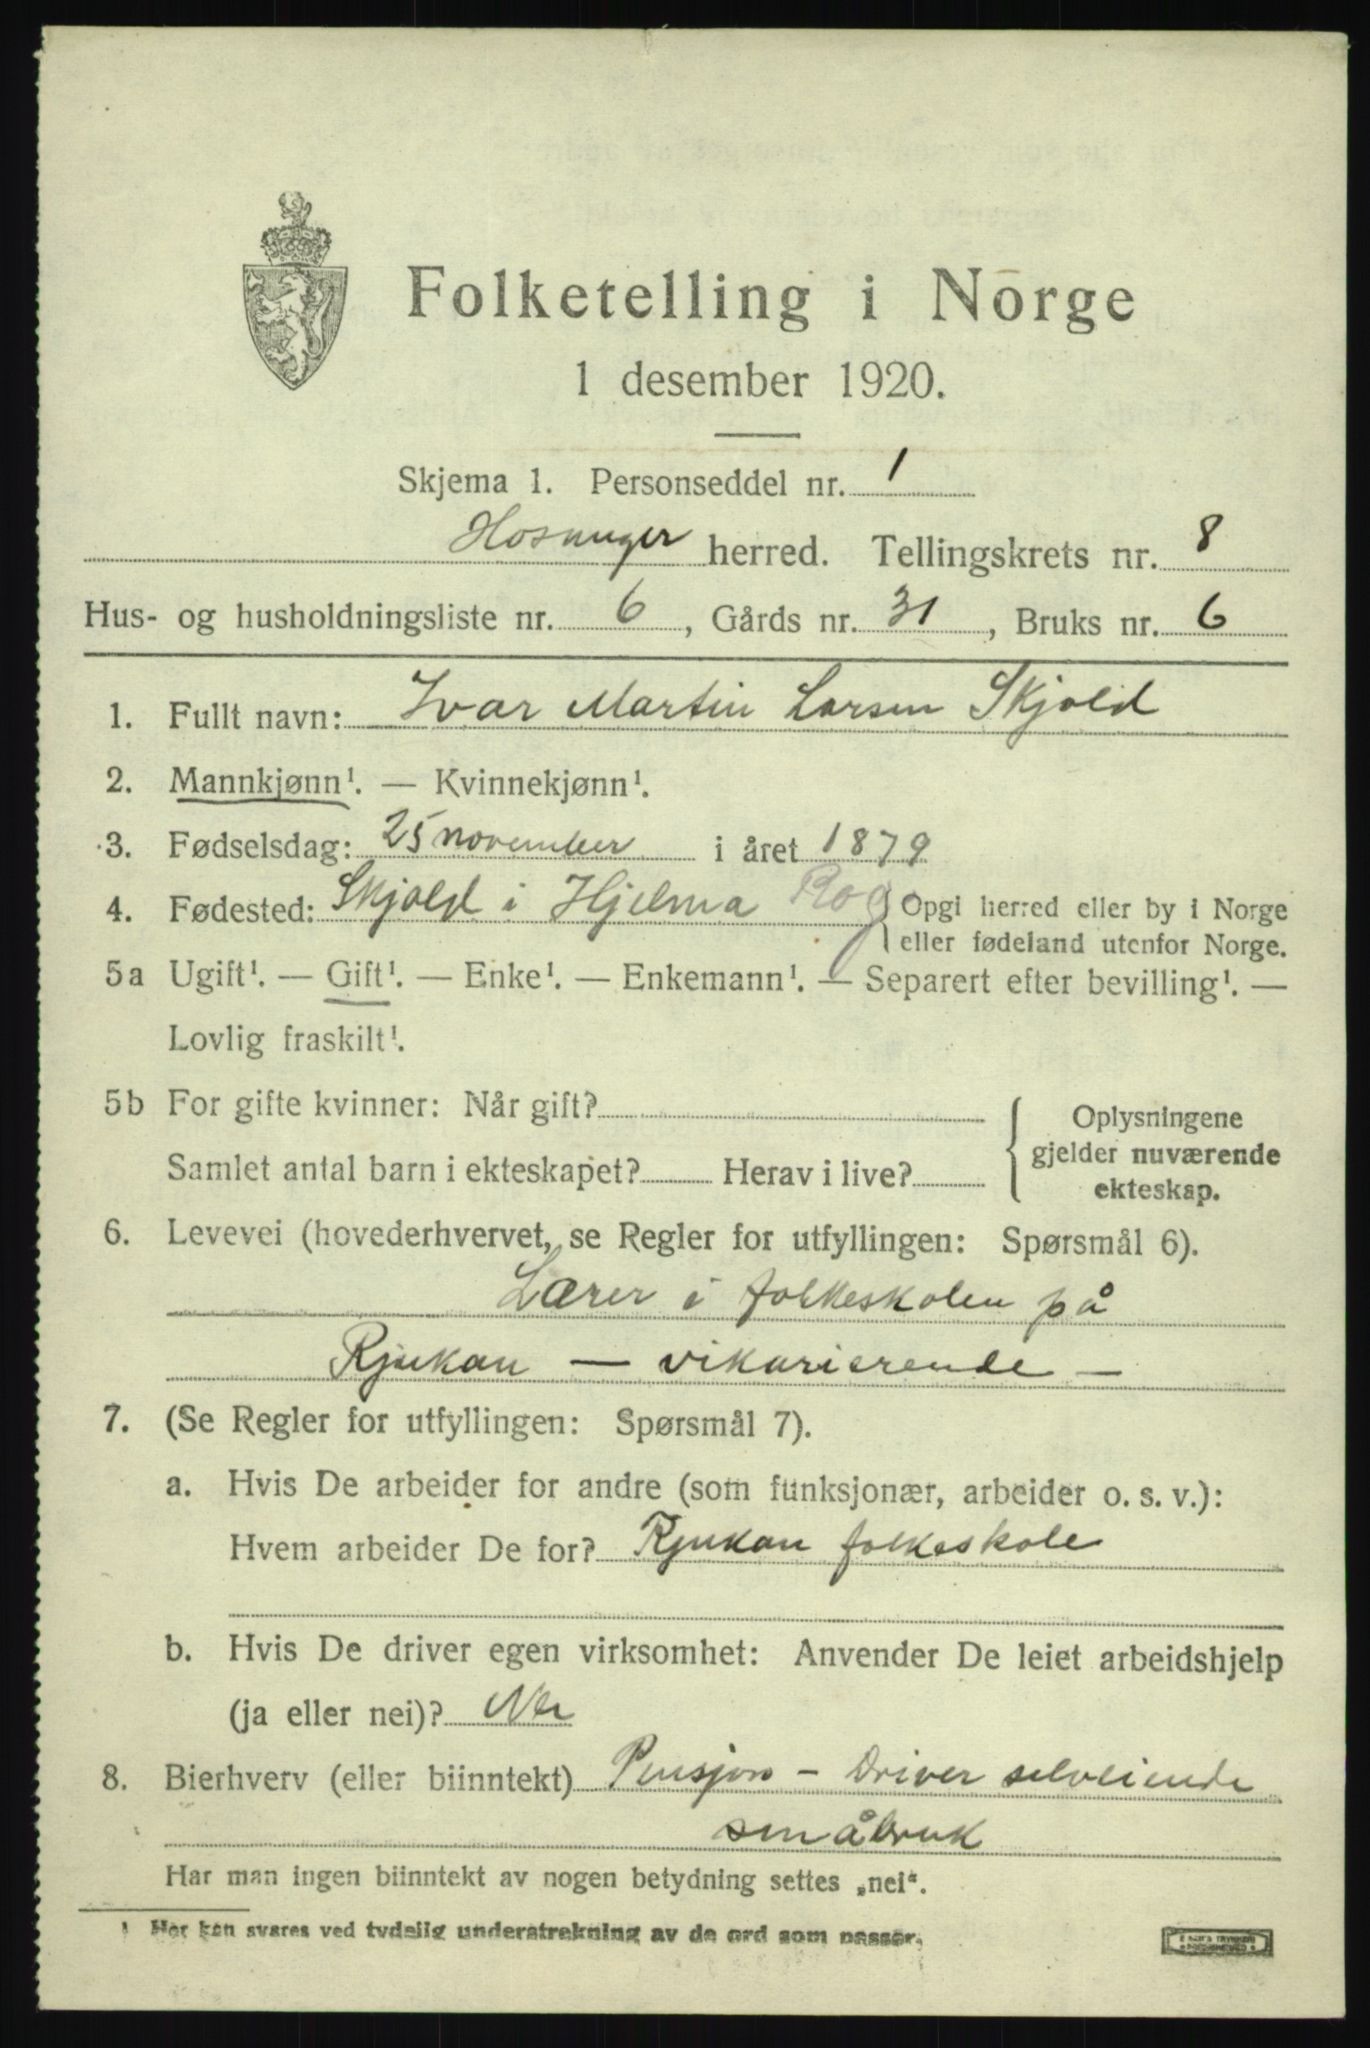 Folketelling i Norge
1 desember 1920.
Skjema 1. Personseddel nr. 1
Hosanger herred. Tellingskrets nr. 8
Hus- og husholdningsliste nr. 6, Gårds nr. 31, Bruks nr. 6
1. Fullt navn: Ivar Martin Larsen Skjold
2. Mannkjønn¹. — Kvinnekjønn¹.
3. Fødselsdag: 25 november i året 1879
4. Fødested: Skjold i Hjelma Rog Opgi herred eller by i Norge
eller fødeland utenfor Norge.
5a Ugift¹. — Gift¹. — Enke¹. — Enkemann¹. — Separert efter bevilling¹. —
Lovlig fraskilt¹.
5b For gifte kvinner: Når gift?
Samlet antal barn i ekteskapet? Herav i live?
Oplysningene
gjelder nuværende
ekteskap.
6. Levevei (hovederhvervet, se Regler for utfyllingen: Spørsmål 6).
Lærer i folkeskolen på
Rjukan — vikarierende —
7. (Se Regler for utfyllingen: Spørsmål 7).
a. Hvis De arbeider for andre (som funksjonær, arbeider o. s. v.):
Hvem arbeider De for? Rjukan folkeskole
b. Hvis De driver egen virksomhet: Anvender De leiet arbeidshjelp
(ja eller nei)? Nei
8. Bierhverv (eller biinntekt) Pensjon – Driver selveiende
småbruk
Har man ingen biinntekt av nogen betydning settes „nei“.
¹ Her kan svares ved tydelig understrekning av de ord som passer.